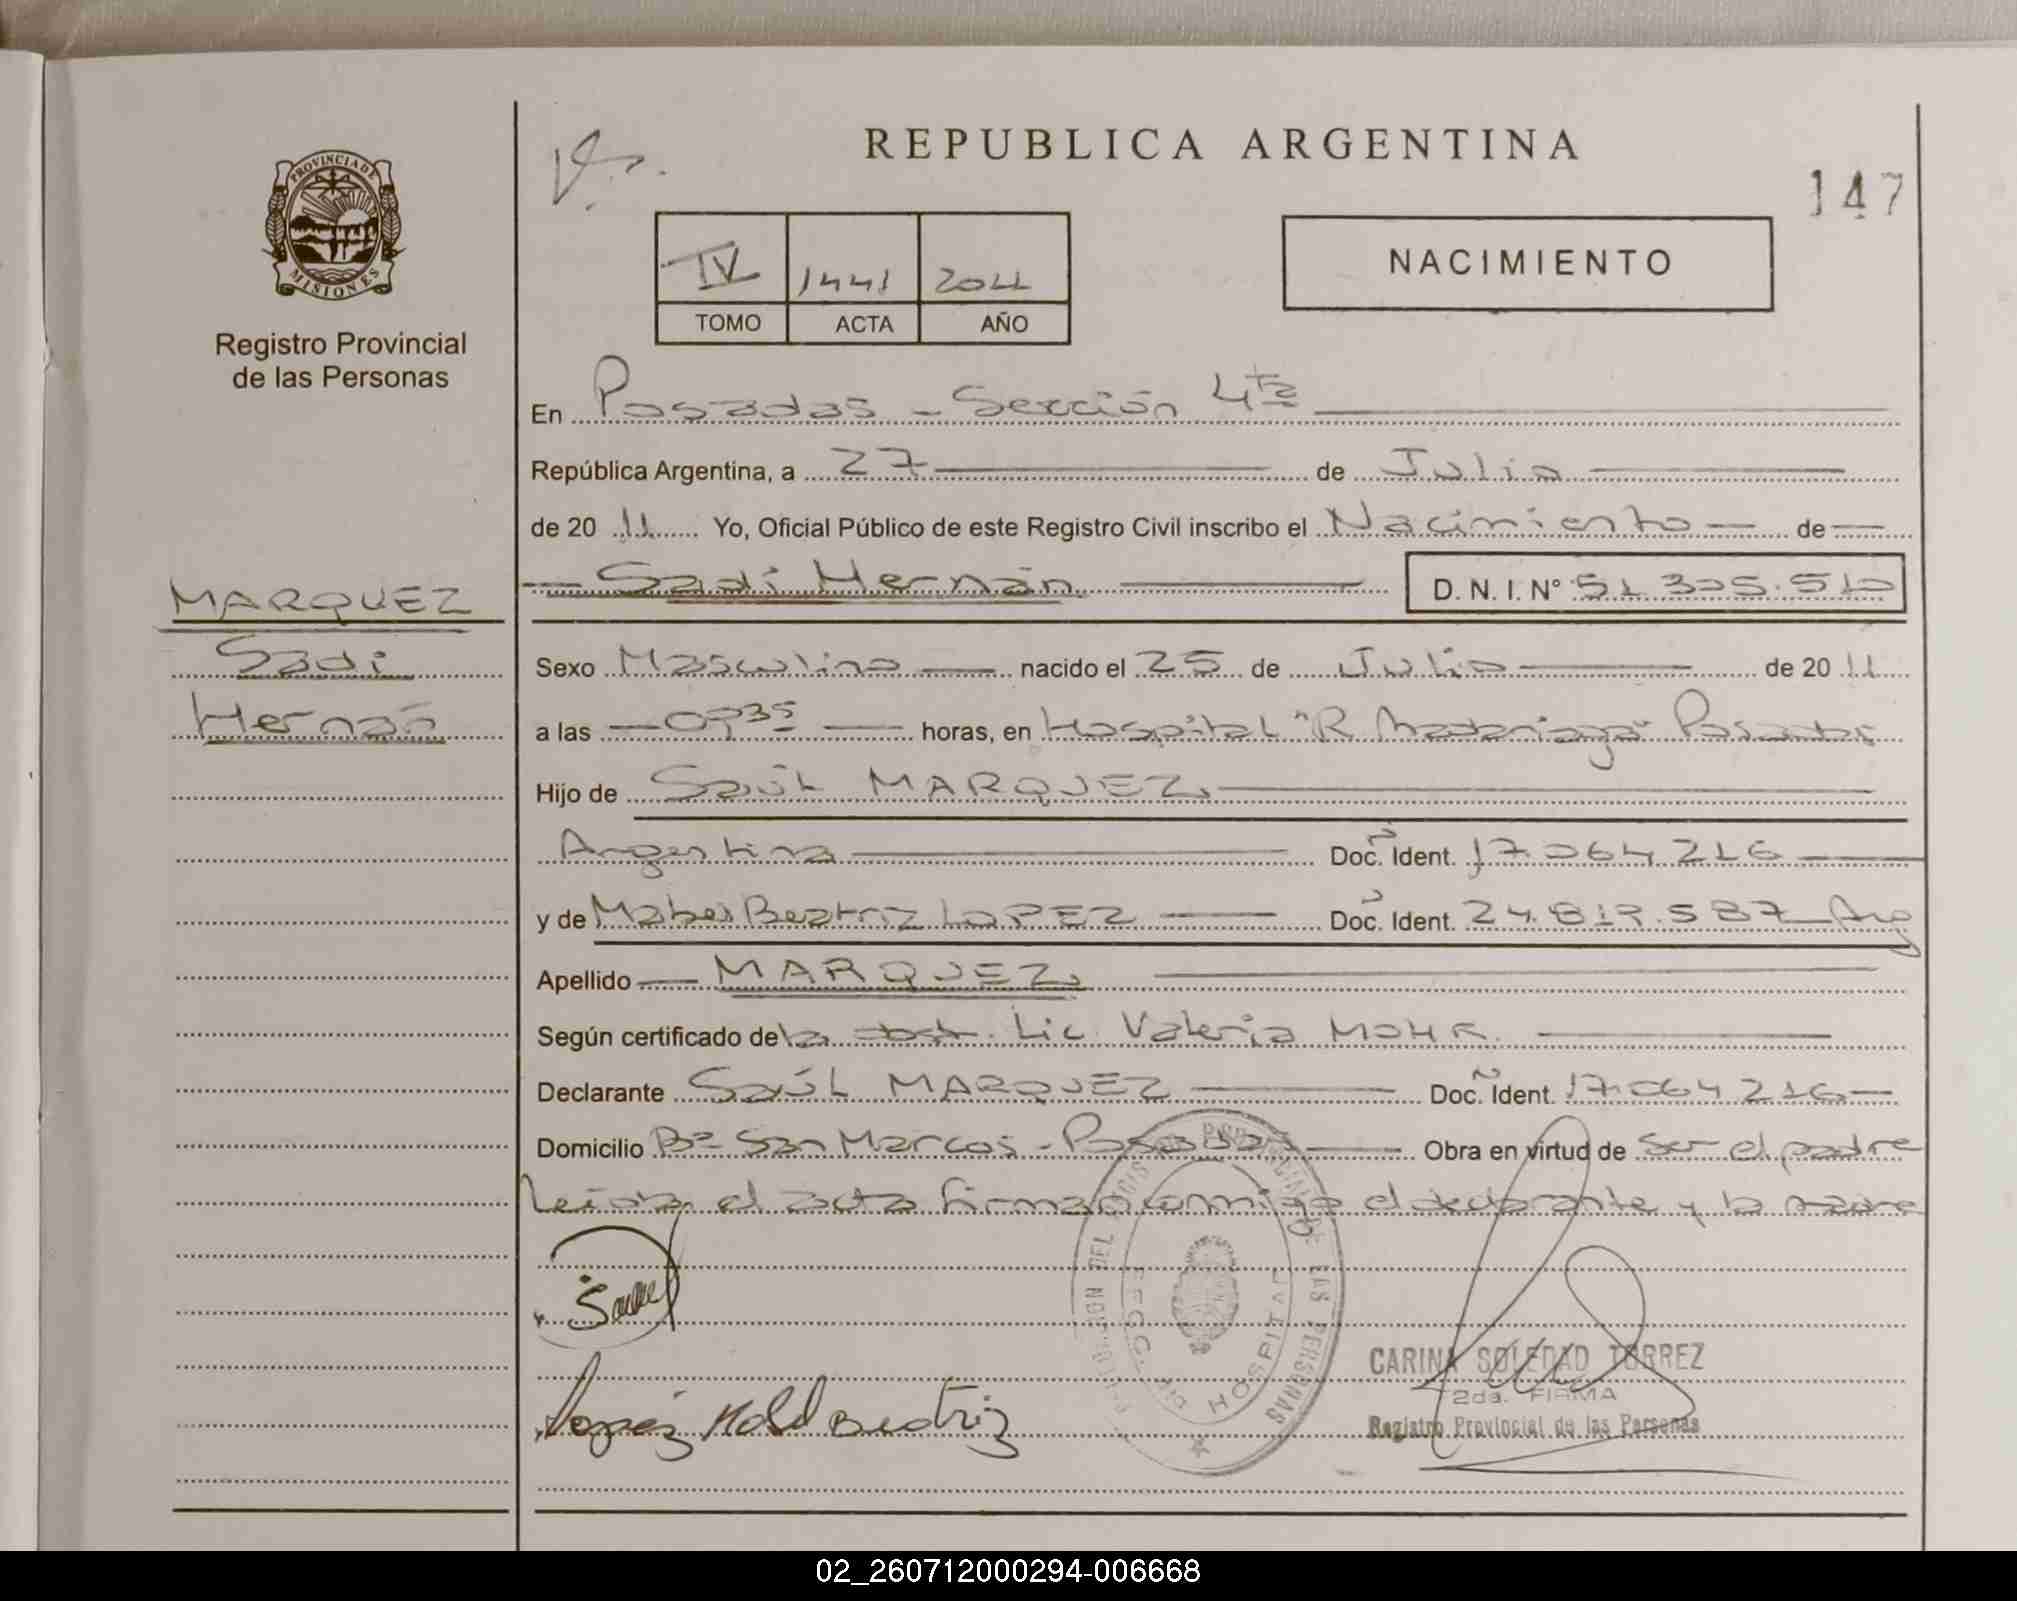 REPUBLICA ARGENTINA
147
PROVINCIA DE
MISIONES
Registro Provincial
de las Personas
IV 1441 2011
TOMO ACTA AÑO
NACIMIENTO
En Posadas - Sección 4ta
República Argentina, a 27 de Julio
de 20 11 Yo, Oficial Público de este Registro Civil inscribo el Nacimiento de
Sadi Hernán D. N. I. Nº 51.305.510
MARQUEZ
Sadi
Hernán
Sexo Masculino nacido el 25 de Julio de 20 11
a las 0735 horas, en Hospital "R Madariaga" Posadas
Hijo de Saúl MARQUEZ
Argentina Doc. Ident. 17.064.216
y de Mabel Beatriz LOPEZ Doc. Ident. 24.819.587 Arg
Apellido MARQUEZ
Según certificado de la obst. Lic. Valeria MOHR.
Declarante Saúl MARQUEZ Doc. Ident. 17.064.216
Domicilio Bº San Marcos - Posadas Obra en virtud de ser el padre
Leída el acta firman conmigo el declarante y la madre
DIRECCION DEL REGISTRO PROVINCIAL DE LAS PERSONAS
SECC. HOSPITAL
CARINA SOLEDAD TORREZ
2da. FIRMA
Registro Provincial de las Personas
Lopez Mabel Beatriz
02_260712000294-006668